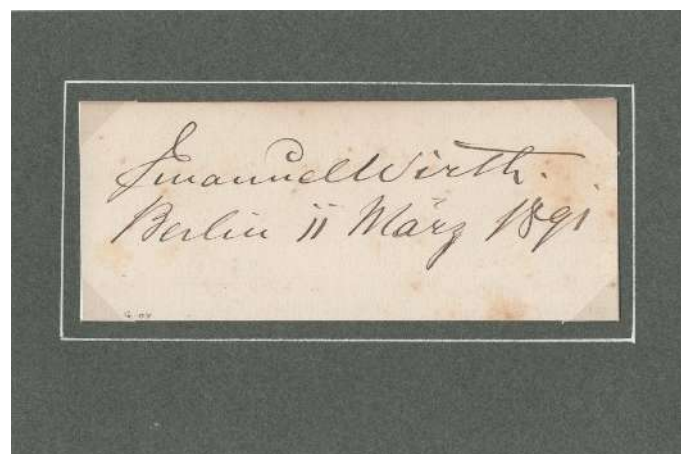 Emanuel Wirth.
Berlin 11 März 1891